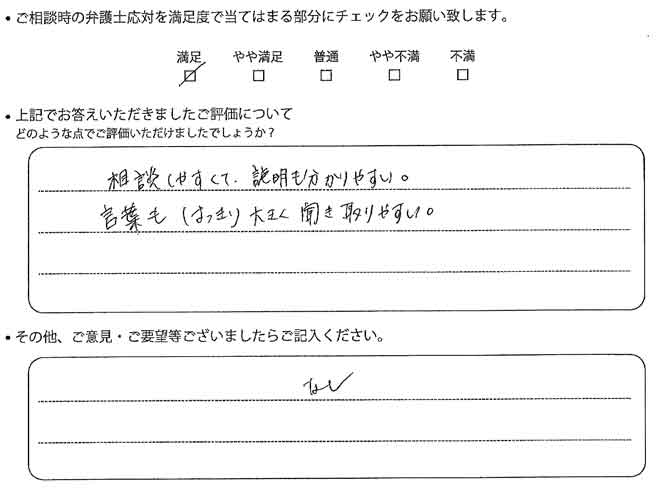 • ご相談時の弁護士応対を満足度で当てはまる部分にチェックをお願い致します。
満足 やや満足 普通 やや不満 不満
• 上記でお答えいただきましたご評価について
どのような点でご評価いただけましたでしょうか？
相談しやすくて、説明も分かりやすい。
言葉もはっきり大きく聞き取りやすい。
• その他、ご意見・ご要望等ございましたらご記入ください。
なし